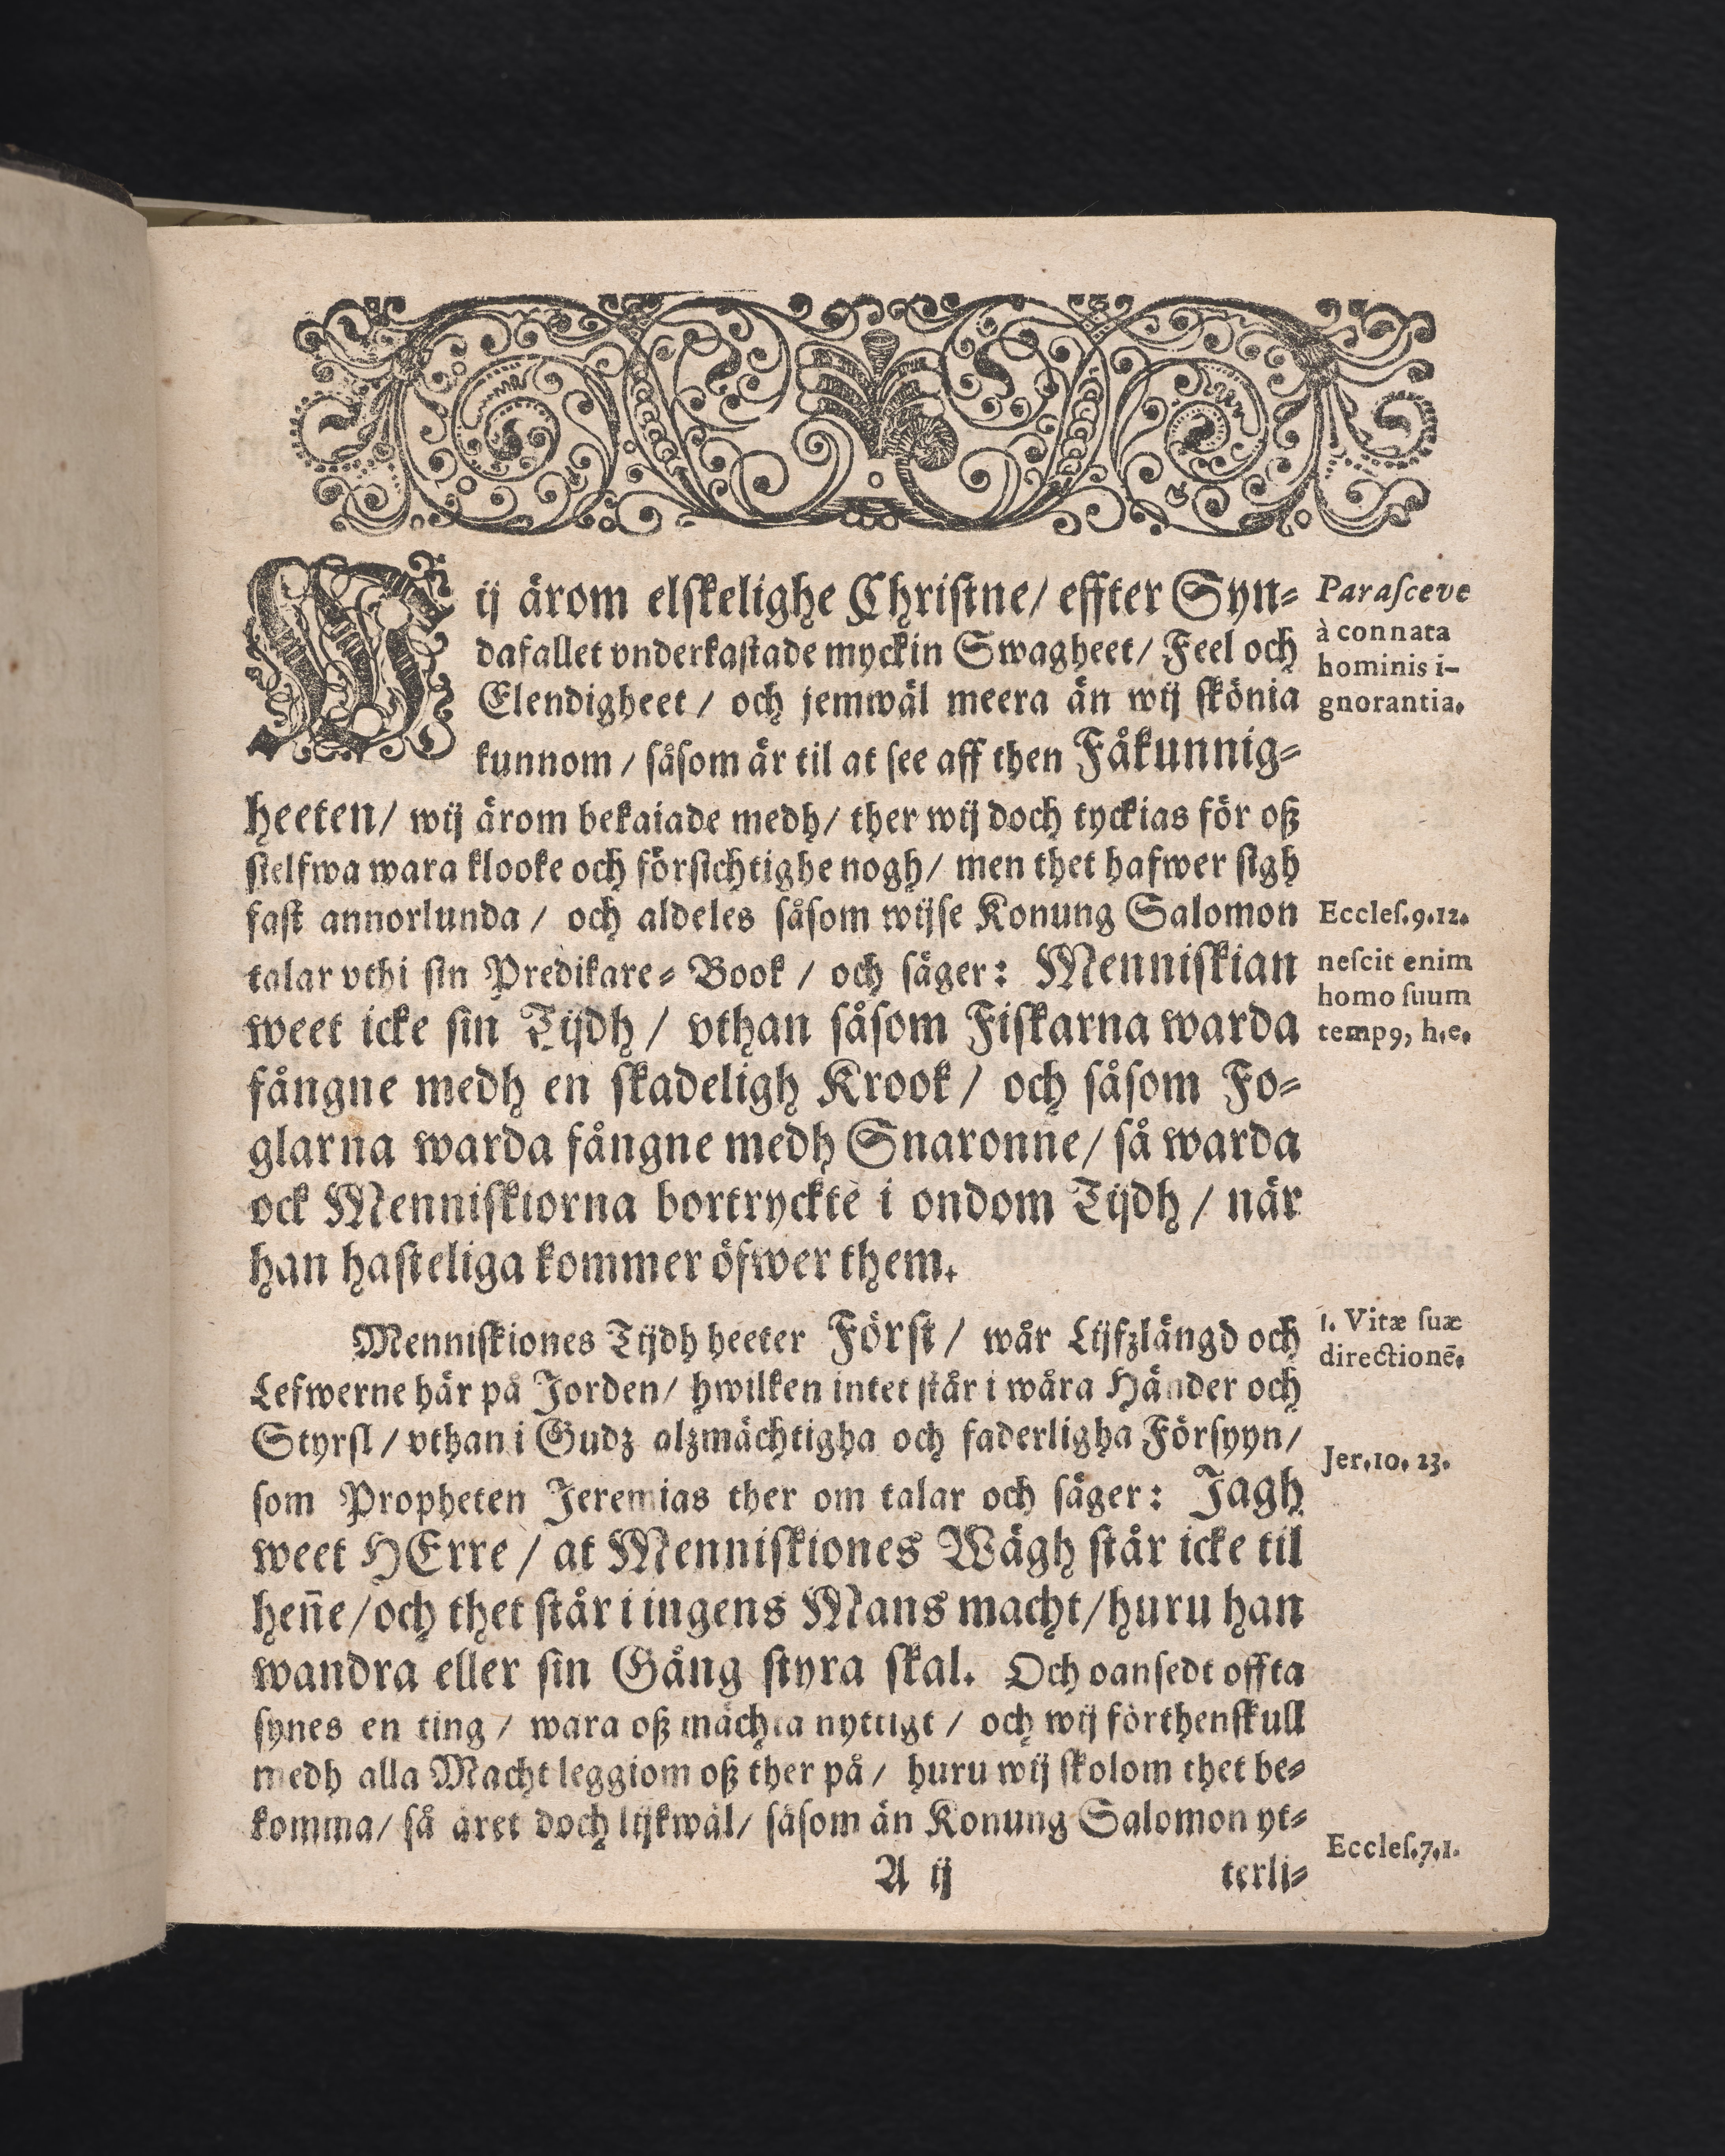 Wij ärom elskelighe Christne/ effter Syn-
dafallet vnderkastade myckin Swagheet/ Feel och
Elendigheet / och jemwäl meera än wij skönia
kunnom / såsom är til at see aff then Fåkunnig-
heeten/ wij ärom bekaiade medh/ ther wij doch tyckias för oß
sielfwa wara klooke och försichtighe nogh/ men thet hafwer sigh
fast annorlunda / och aldeles såsom wijse Konung Salomon
talar vthi sin Predikare- Book / och säger: Menniskian
weet icke sin Tijdh / vthan såsom Fiskarna warda
fångne medh en skadeligh Krook / och såsom Fo-
glarna warda fångne medh Snaronne/ så warda
ock Menniskiorna bortryckte i ondom Tijdh / när
han hasteliga kommer öfwer them.
Parasceve
à connata
hominis i-
gnorantia.
Eccles.9.12.
nescit enim
homo suum
temp9, h.e.
Menniskiones Tijdh heeter Först / wår Lijfzlängd och
Lefwerne här på Jorden/ hwilken intet står i wåra Händer och
Styrsl / vthan i Gudz alzmächtigha och faderligha Försyyn/
som Propheten Jeremias ther om talar och säger: Jagh
weet HErre / at Menniskiones Wägh står icke til
hen̄e/och thet står i ingens Mans macht/huru han
wandra eller sin Gång styra skal. Och oansedt offta
synes en ting / wara oß mächta nyttigt / och wij förthenskull
medh alla Macht leggiom oß ther på / huru wij skolom thet be-
komma/ så äret doch lijkwäl/ såsom än Konung Salomon yt-
1. Vitæ suæ
directionē.
Jer.10. 23.
Eccles.7.1.
A ij
terli-